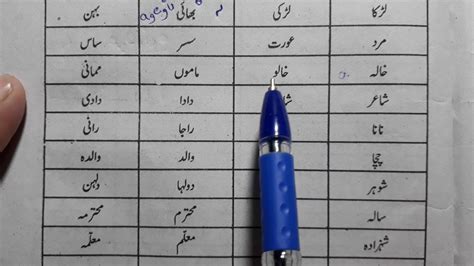 لڑکا لڑکی بھائی بہن
مرد عورت سسر ساس
خالہ خالو ماموں ممانی
شاعر دادا دادی
نانا راجا رانی
چچا والد والدہ
شوہر دولہا دلہن
سالہ محترم محترمہ
شہزادہ معلّم معلّمہ